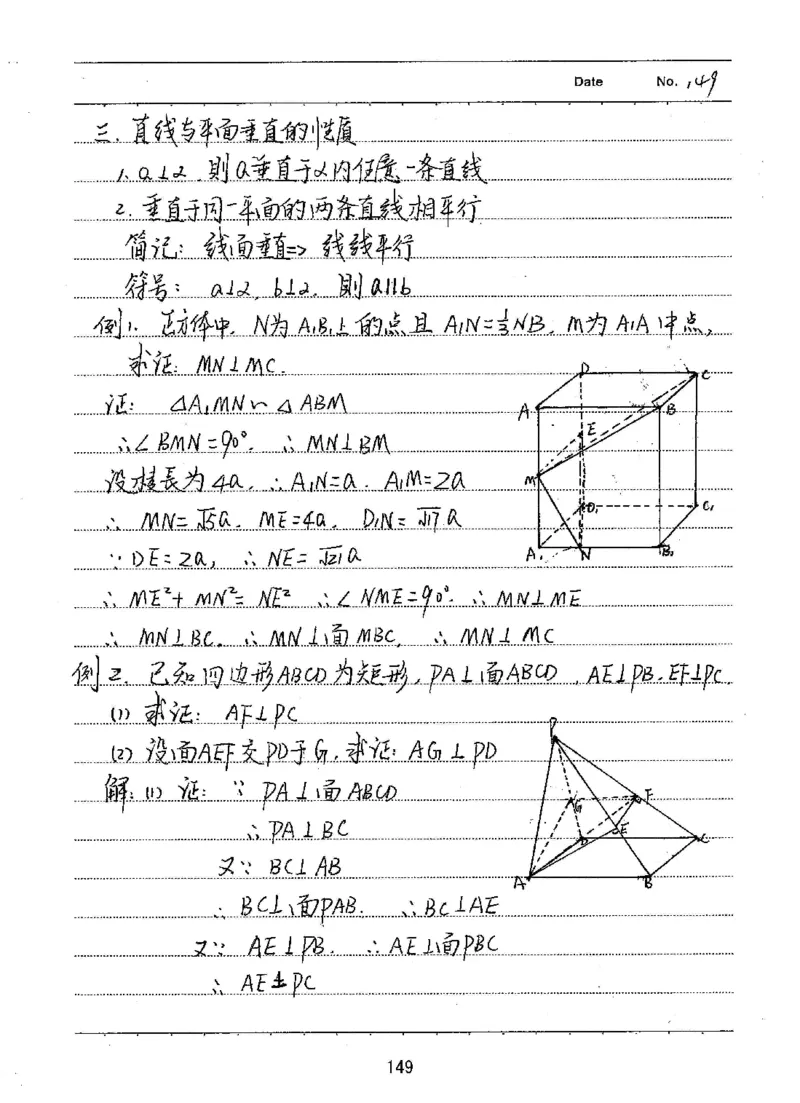 Date No. 149
三. 直线与平面垂直的性质
1. a⊥α. 则a垂直于α内任意一条直线
2. 垂直于同一平面的两条直线相平行
简记: 线面垂直=> 线线平行
符号: a⊥α, b⊥α. 则a∥b
例1. 正方体中, N为A₁B₁上的点且 A₁N=⅓NB₁, M为A₁A中点,
求证: MN⊥MC.
证: △A₁MN∽△ABM
∴∠BMN=90°. ∴ MN⊥BM
设棱长为4a, ∴A₁N=a. A₁M=2a
∴ MN=√5a. ME=4a, D₁N=√17a
∵DE=2a, ∴ NE=√21a
∴ ME²+MN²=NE² ∴∠NME=90°. ∴MN⊥ME
∴ MN⊥BC. ∴MN⊥面MBC, ∴ MN⊥MC
例2. 已知四边形ABCD为矩形, PA⊥面ABCD, AE⊥PB. EF⊥PC.
(1) 求证: AF⊥PC
(2) 设面AEF交PD于G, 求证: AG⊥PD
解: (1) 证: ∵ PA⊥面ABCD
∴PA⊥BC
又∵ BC⊥AB
∴BC⊥面PAB. ∴BC⊥AE
又∵ AE⊥PB. ∴AE⊥面PBC
∴ AE⊥PC
D
C
A
B
E
M
D₁
C₁
A₁
N
B₁
P
G
F
D
E
C
A
B
149